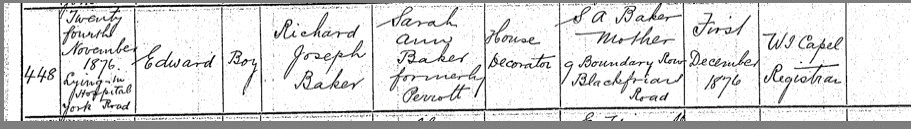 448
Twenty
fourth
November
1876.
Lying-in
Hospital
York Road
Edward
Boy
Richard
Joseph
Baker
Sarah
Ann
Baker
formerly
Perrott
House
Decorator
S A Baker
Mother
9 Boundary Row
Blackfriars
Road
First
December
1876
W I Capel
Registrar